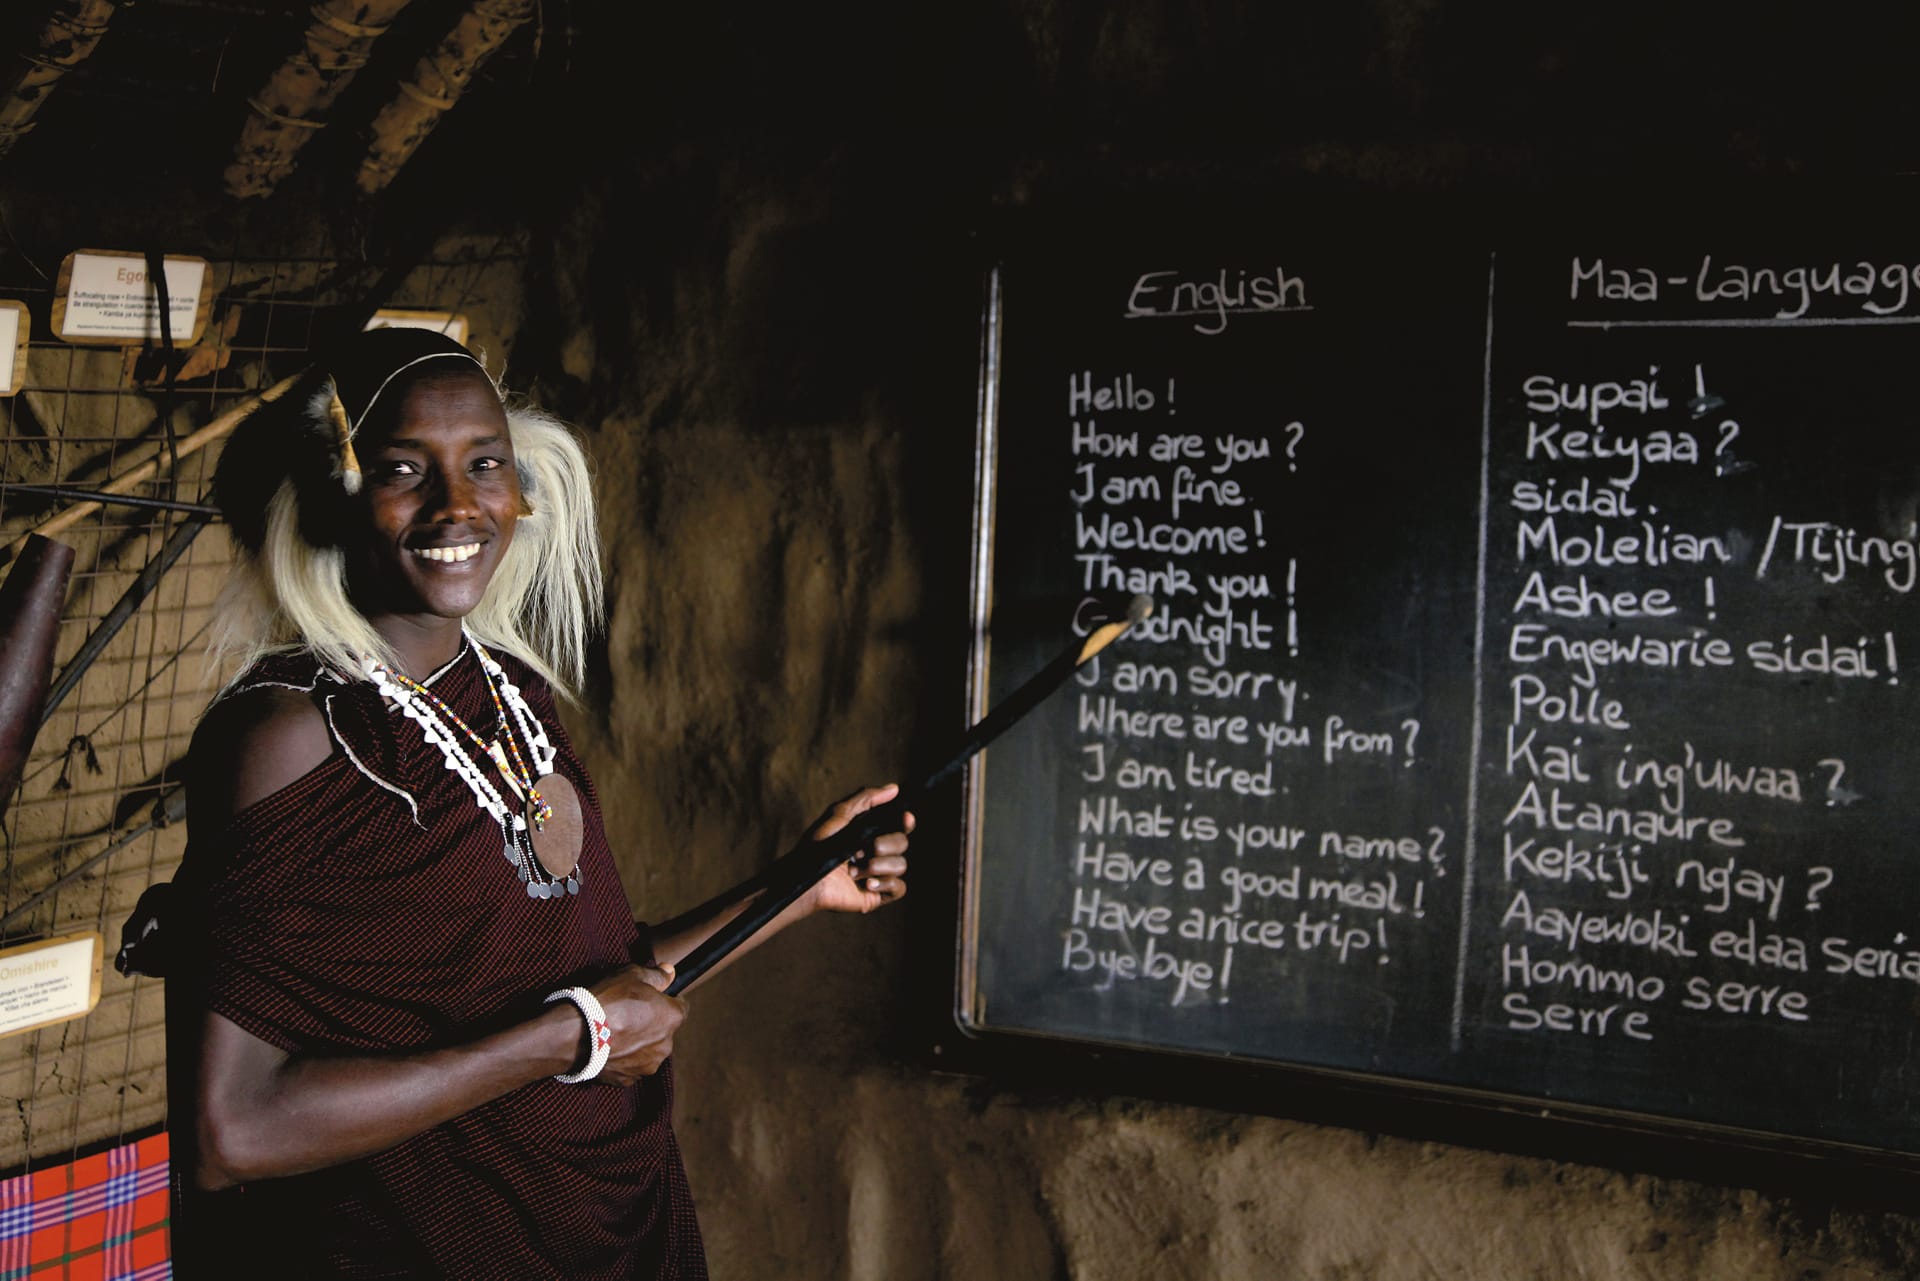 Suffocating rope •
de strangulation •
• Kamba ya
English
Hello!
How are you?
I am fine.
Welcome!
Thank you!
I am sorry.
Where are you from?
I am tired.
What is your name?
Have a good meal!
Have a nice trip!
Bye bye!
Maa-Language
Supai!
Keiyaa?
sidai.
Molelian /Tijing'
Ashee!
Engewarie sidai!
Polle
Kai ing'uwaa?
Atanaure
Kekiji ng'ay?
Aayewoki edaa Seria
Hommo serre
Serre
Omishire